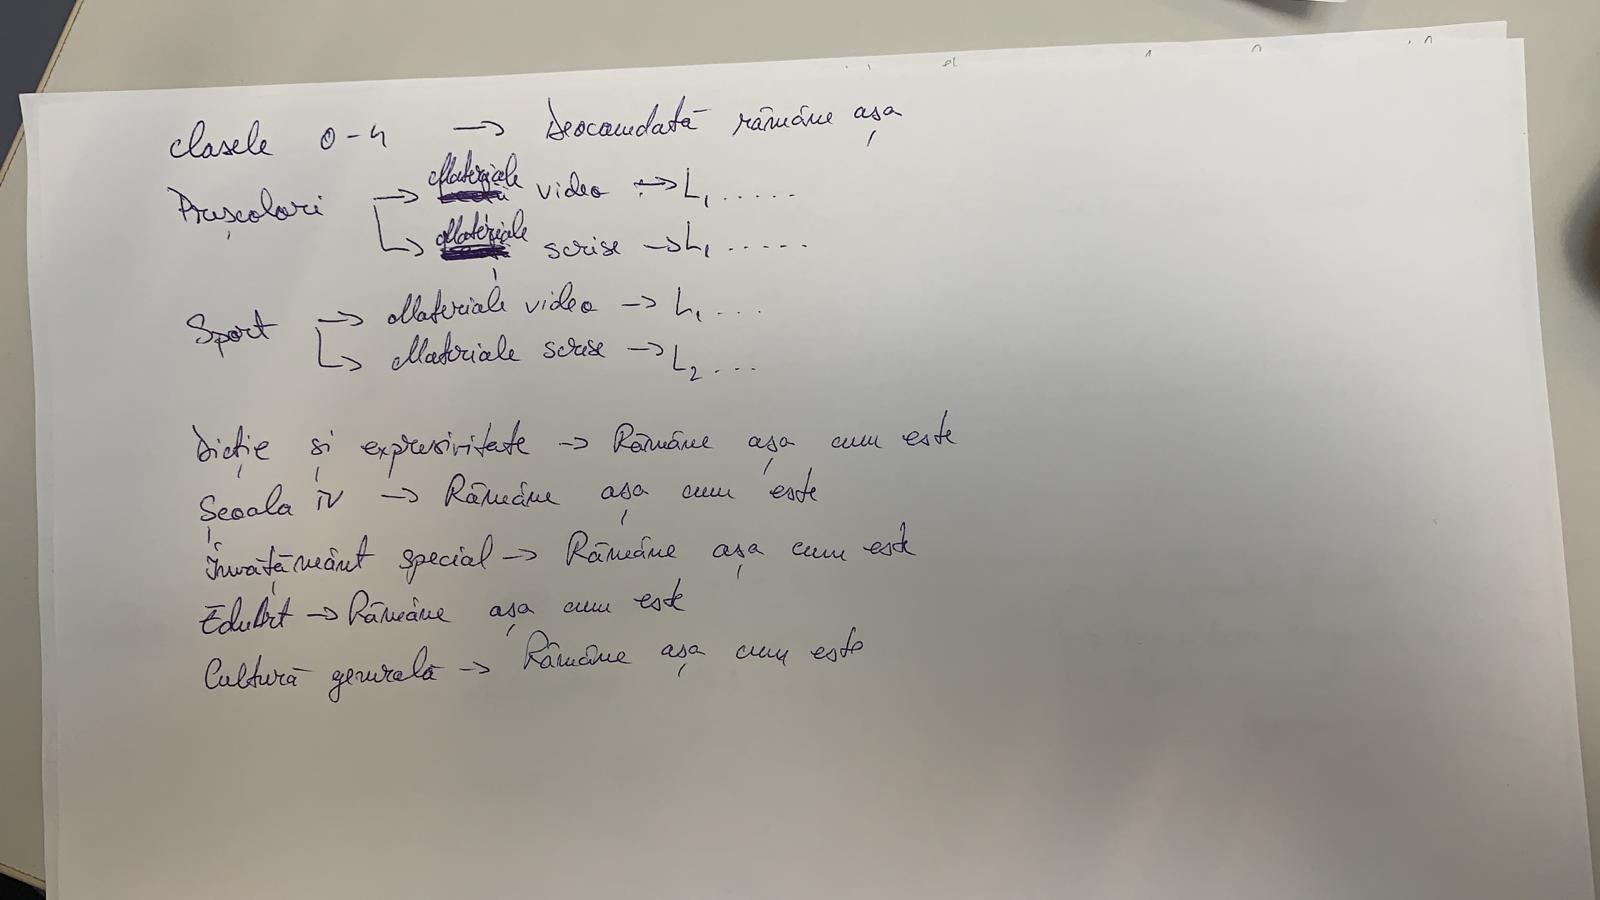 Clasele 0-4 → Deocamdată rămâne așa
Preșcolari → Materiale video → L1 .....
↳ Materiale scrise → L1 .....
Sport → Materiale video → L1 ...
↳ Materiale scrise → L2 ...
Dicție și expresivitate → Rămâne așa cum este
Școala TV → Rămâne așa cum este
Învățământ special → Rămâne așa cum este
EduArt → Rămâne așa cum este
Cultură generală → Rămâne așa cum este